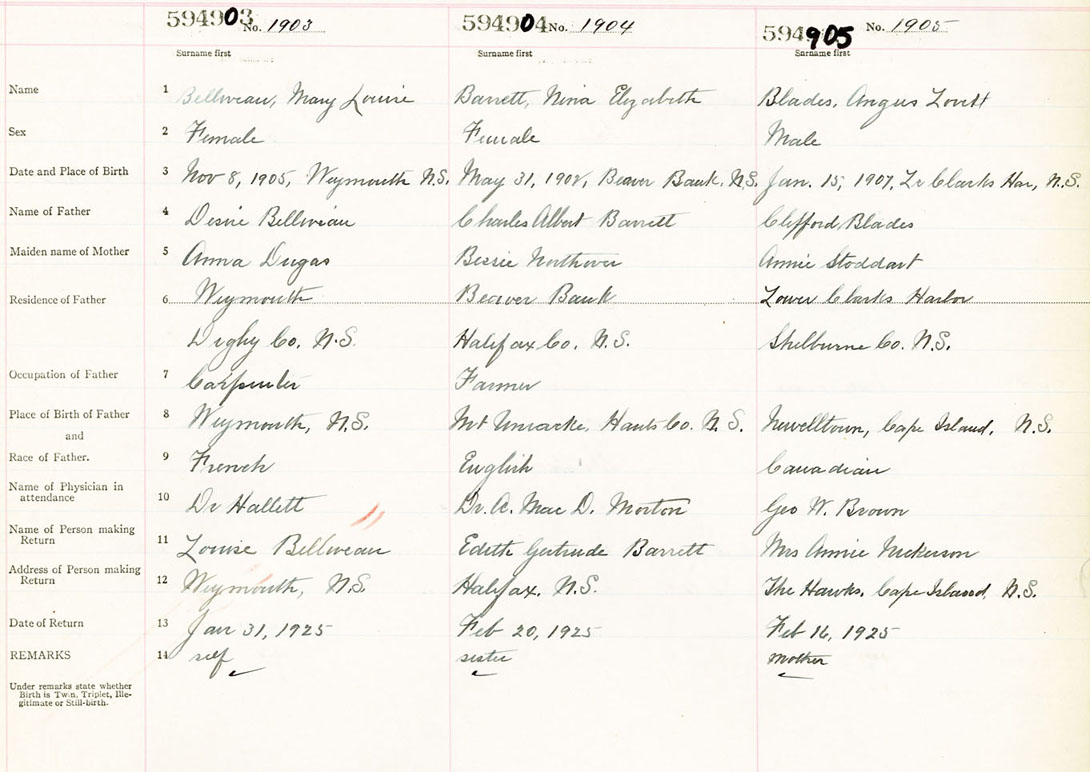 594903 No. 1903 594904 No. 1904 594905 No. 1905
Surname first Surname first Surname first
Name 1 Belliveau, Mary Louise Barrett, Nina Elizabeth Blades, Angus Lovitt
Sex 2 Female Female Male
Date and Place of Birth 3 Nov 8, 1905, Weymouth N.S. May 31, Beaver Bank, N.S. Jan. 15, 1907, Lr Clarks Har, N.S.
Name of Father 4 Desire Belliveau Charles Albert Barrett Clifford Blades
Maiden name of Mother 5 Anna Dugas Bessie Northover Annie Stoddart
Residence of Father 6 Weymouth Beaver Bank Lower Clarks Harbor
Digby Co. N.S. Halifax Co. N.S. Shelburne Co. N.S.
Occupation of Father 7 Carpenter Farmer
Place of Birth of Father 8 Weymouth, N.S. Mt Uniacke, Hants Co. N.S. Newelltown, Cape Island, N.S.
and
Race of Father. 9 French English Canadian
Name of Physician in
attendance 10 Dr Hallett Dr. A. Mac D. Morton Geo W. Brown
Name of Person making
Return 11 Louise Belliveau Edith Gertrude Barrett Mrs Annie Nickerson
Address of Person making
Return 12 Weymouth, N.S. Halifax, N.S. The Hawks, Cape Island, N.S.
Date of Return 13 Jan 31, 1925 Feb 20, 1925 Feb 16, 1925
REMARKS 14 self sister mother
Under remarks state whether
Birth is Twin, Triplet, Ille-
gitimate or Still-birth.